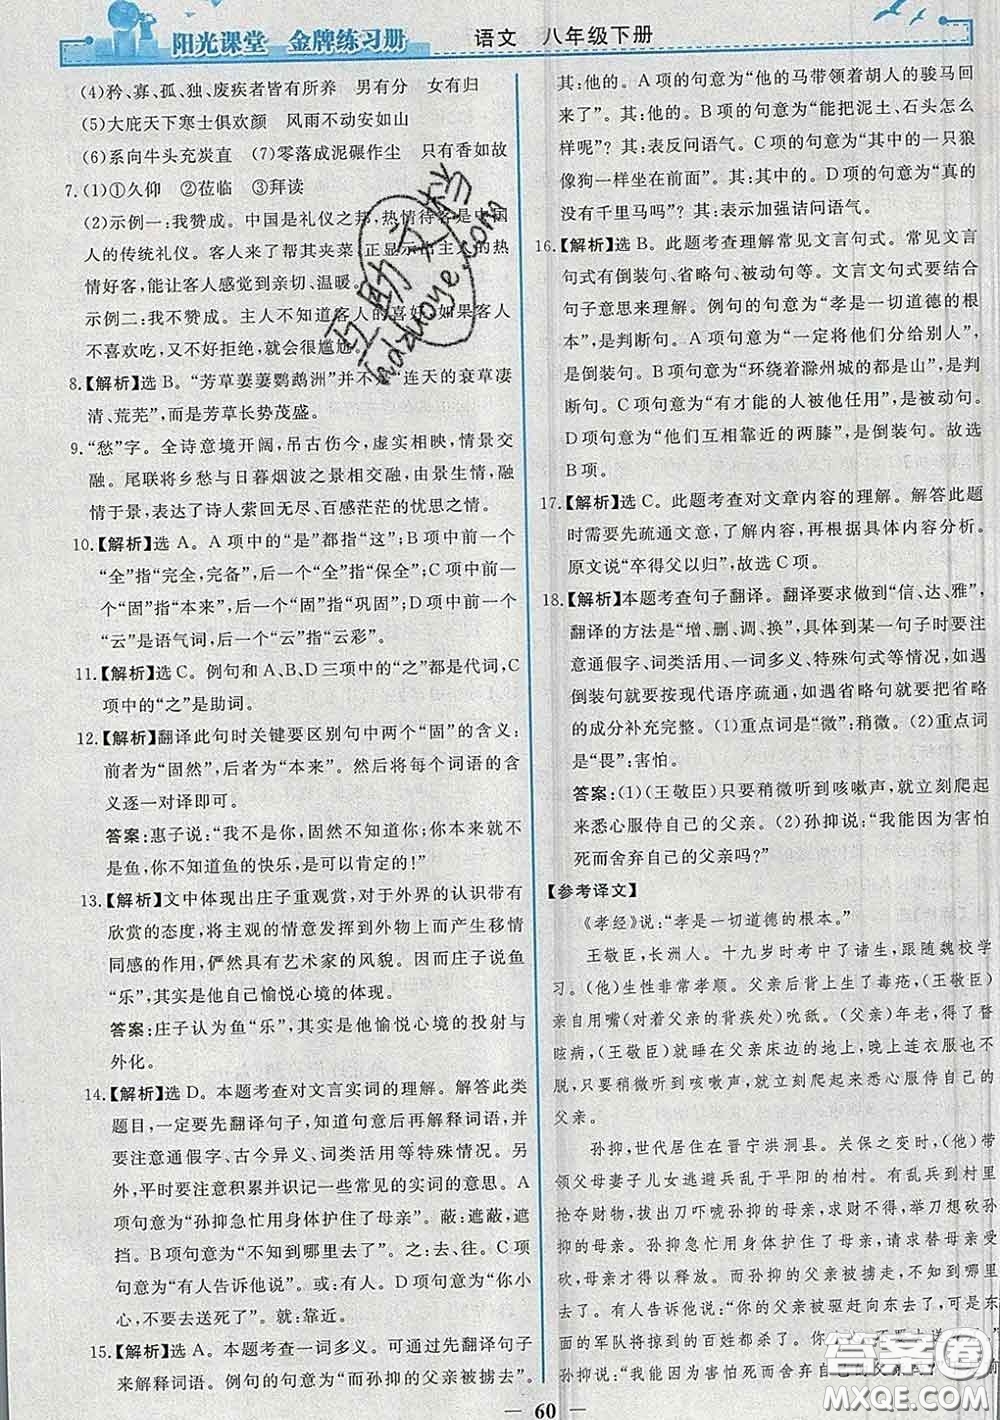 阳光课堂 金牌练习册 语文 八年级下册
(4)矜、寡、孤、独、废疾者皆有所养 男有分 女有归
(5)大庇天下寒士俱欢颜 风雨不动安如山
(6)系向牛头充炭直 (7)零落成泥碾作尘 只有香如故
7.(1)①久仰 ②莅临 ③拜读
(2)示例一:我赞成。中国是礼仪之邦,热情待客是中国
人的传统礼仪。客人来了帮其夹菜,正显示出主人的热
情好客,能让客人感觉到亲切、温暖。
示例二:我不赞成。主人不知道客人的喜好,如果客人
不喜欢吃,又不好拒绝,就会很尴尬。
8.【解析】选 B。“芳草萋萋鹦鹉洲”并不是“连天的衰草凄
清、荒芜”,而是芳草长势茂盛。
9.“愁”字。全诗意境开阔,吊古伤今,虚实相映,情景交
融。尾联将乡愁与日暮烟波之景相交融,由景生情,情
景交融,表达了诗人萦回无尽、百感茫茫的忧思之情。
10.【解析】选 A。A 项中的“是”都指“这”;B 项中前一个
“全”指“完全,完备”,后一个“全”指“保全”;C 项中前一
个“固”指“本来”,后一个“固”指“巩固”;D 项中前一个
“云”是语气词,后一个“云”指“云彩”。
11.【解析】选 C。例句和 A、B、D 三项中的“之”都是代词,C
项中的“之”是助词。
12.【解析】翻译此句时关键要区别句中两个“固”的含义:
前者为“固然”,后者为“本来”。然后将每个词语的含
义逐一对译即可。
答案:惠子说:“我不是你,固然不知道你;你本来就不
是鱼,你不知道鱼的快乐,是可以肯定的!”
13.【解析】文中体现出庄子重观赏,对于外界的认识带有
欣赏的态度,将主观的情意发挥到外物上而产生移情
同感的作用,俨然具有艺术家的风貌。因而庄子说鱼
“乐”,其实是他自己愉悦心境的体现。
答案:庄子认为鱼“乐”,其实是他愉悦心境的投射与
外化。
14.【解析】选 D。本题考查对文言实词的理解。解答此类
题目,一定要先翻译句子,知道句意后再解释词语,同时
要注意通假字、古今异义、词类活用等特殊情况。另
外,平时要注意积累并识记一些常见的实词的意思。A
项句意为“孙抑急忙用身体护住了母亲”。蔽:遮蔽,遮
挡。B 项句意为“不知到哪里去了”。之:去、往。C 项
句意为“有人告诉他说”。或:有人。D 项句意为“你小
心,不要去送死了”。就:靠近。
15.【解析】选 A。本题考查一词多义。可通过先翻译句子
来解释词语。例句的句意为“而孙抑的父亲被掳去”。
其:他的。A 项的句意为“他的马带领着胡人的骏马回
来了”。其:他的。B 项的句意为“能把泥土、石头怎么
样呢?”。其:表反问语气。C 项的句意为“其中的一只狼
像狗一样坐在前面”。其:其中。D 项的句意为“真的
没有千里马吗?”其:表示加强诘问语气。
16.【解析】选 B。此题考查理解常见文言句式。常见文言
句式有倒装句、省略句、被动句等。文言文句式要结合
句子意思来理解。例句的句意为“孝是一切道德的根本”,
是判断句。A 项句意为“一定将他们分给别人”,
是倒装句。B 项句意为“环绕着滁州城的都是山”,是
判断句。C 项句意为“有才能的人被他任用”,是被动
句。D 项句意为“他们互相靠近的两膝”,是倒装句。故选
B 项。
17.【解析】选 C。此题考查对文章内容的理解。解答此题
时需要先疏通文意,了解内容,再根据具体内容分析。
原文说“卒得父以归”,故选 C 项。
18.【解析】本题考查句子翻译。翻译要求做到“信、达、雅”,
翻译的方法是“增、删、调、换”,具体到某一句子时要注
意通假字、词类活用、一词多义、特殊句式等情况,如遇
倒装句就要按现代语序疏通,如遇省略句就要把省略
的成分补充完整。(1)重点词是“微”;稍微。(2)重点词
是“畏”;害怕。
答案:(1)(王敬臣)只要稍微听到咳嗽声,就立刻爬起
来悉心服侍自己的父亲。(2)孙抑说:“我能因为害怕
死而舍弃自己的父亲吗?”
【参考译文】
《孝经》说:“孝是一切道德的根本。”
王敬臣,长洲人。十九岁时考中了诸生,跟随魏校学
习。(他)生性非常孝顺。(他的)父亲后背上生了毒疮,(王敬臣)
亲自用嘴(对着父亲的背疾处)吮舐。(父亲)年老得了瞀
眩病,(王敬臣)就睡在父亲床边的地上,晚上连衣服都不
脱,只要稍微听到咳嗽声,就立刻爬起来悉心服侍自己的
父亲。
孙抑,世代居住在晋宁洪洞县。关保之变时,(他)带
领父母妻子儿女逃避兵乱于平阳的柏村。有乱兵到村里
抢夺财物,拔出刀吓唬孙抑的母亲,求财不得,举刀想砍孙
抑的母亲。孙抑急忙用身体护住了母亲,请求替母亲受
砍,母亲才得以释放。而孙抑的父亲被掳走,不知到哪里
去了。有人告诉他说:“你的父亲被驱赶向东去了,但是东
面的军队将掠到的百姓都杀了。你小心,不要去送死。”
孙抑说:“我能因为害怕死而舍弃自己的父亲吗?”
60
互助文档
hdzuoye.com
答案圈
MXQE.COM